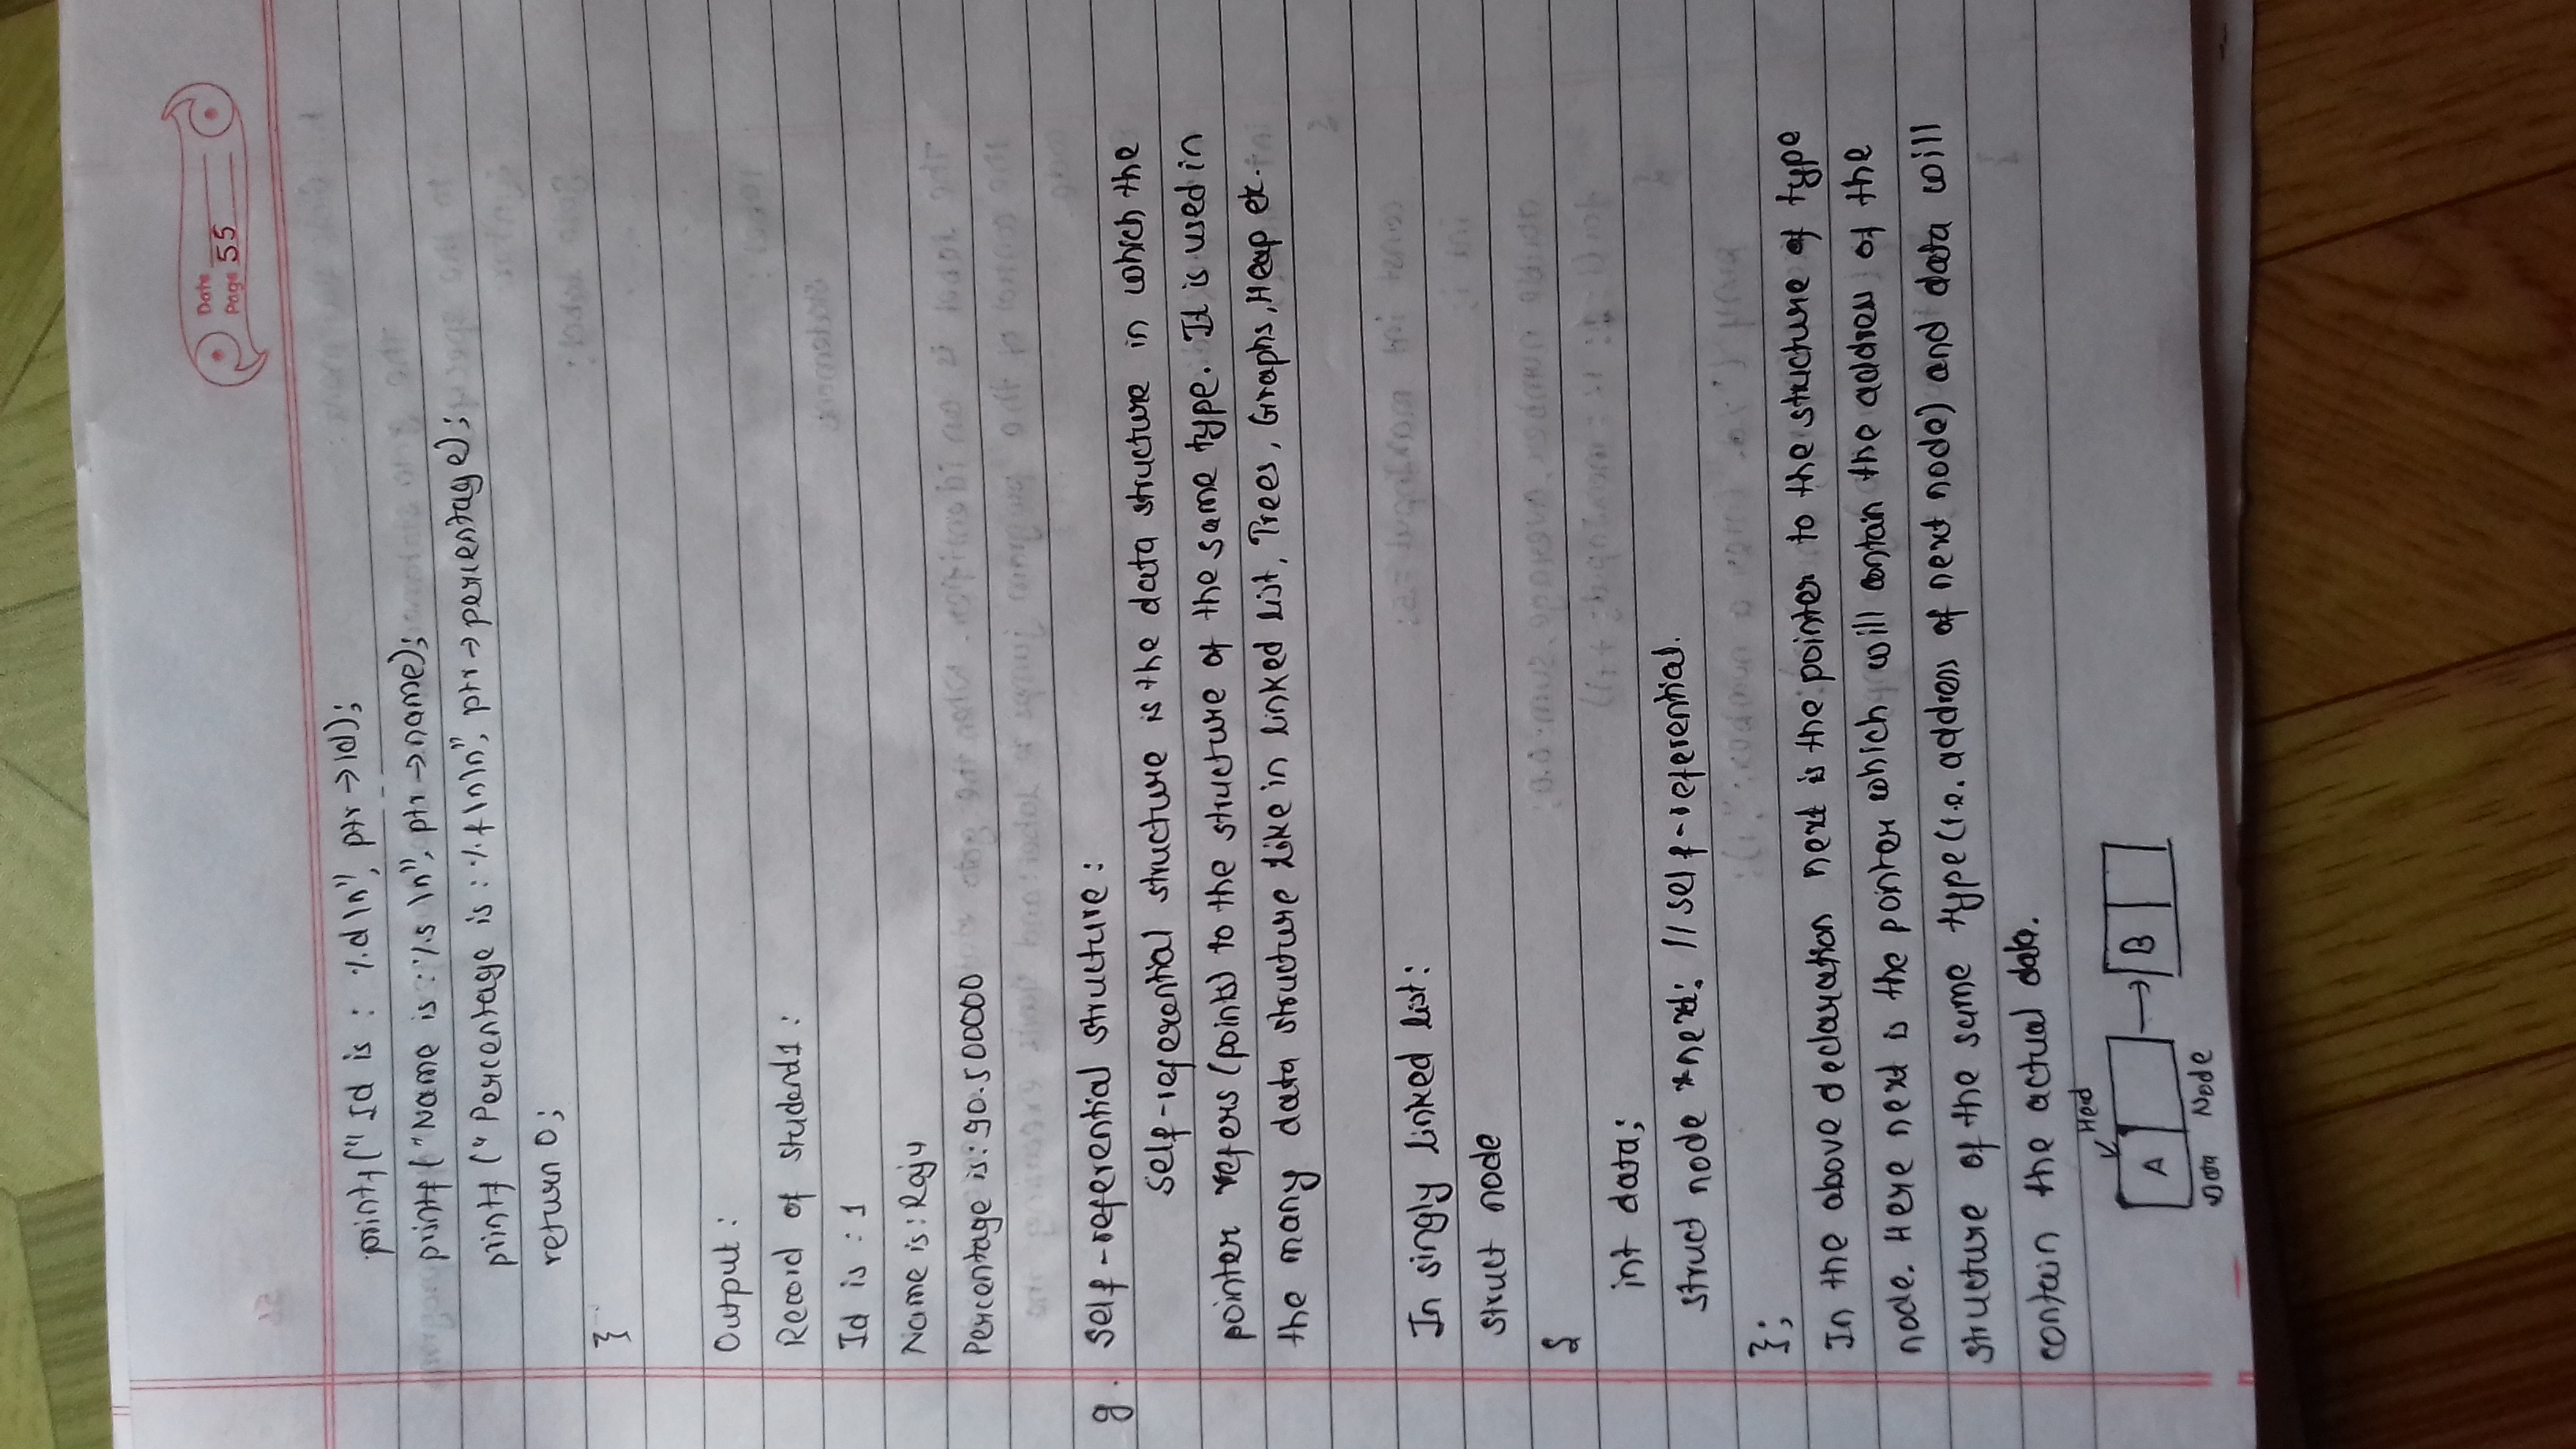 Date
Page 55
printf("Id is : %d\n", ptr->id);
printf("Name is : %s \n", ptr->name);
printf("Percentage is : %f\n\n", ptr->percentage);
return 0;
}
Output :
Record of student1 :
Id is : 1
Name is : Raju
Percentage is : 90.500000
g. Self-referential structure :
Self-referential structure is the data structure in which the
pointer refers (points) to the structure of the same type. It is used in
the many data structure like in linked list, Trees, Graphs, Heap etc.
In singly linked list:
struct node
{
int data;
struct node *next; // self-referential.
};
In the above declaration next is the pointer to the structure of type
node. Here next is the pointer which will contain the address of the
structure of the same type (i.e. address of next node) and data will
contain the actual data.
Head
A B
Data Node